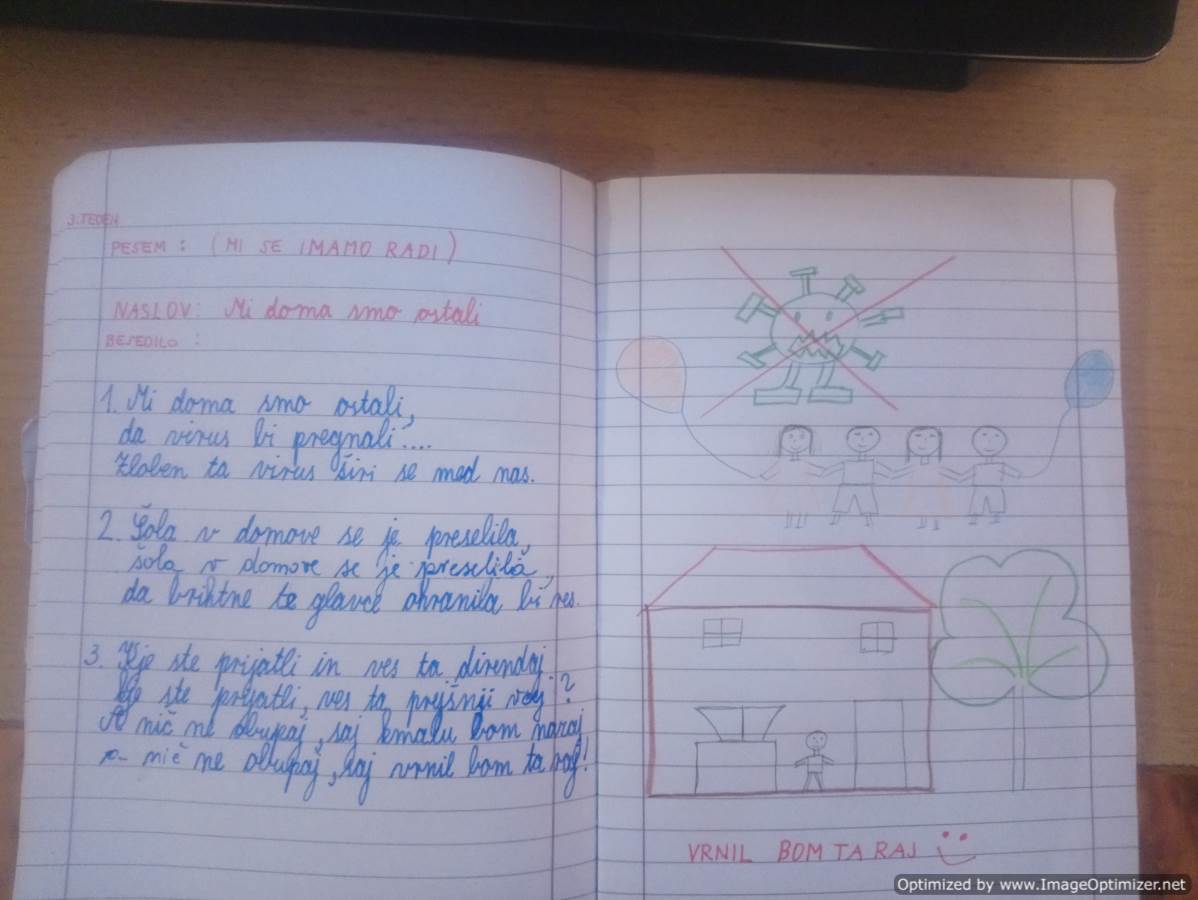 3. TEDEN
PESEM: (MI SE IMAMO RADI)
NASLOV: Mi doma smo ostali
BESEDILO:
1. Mi doma smo ostali,
da virus bi pregnali....
Zloben ta virus širi se med nas.
2. Šola v domove se je preselila,
šola v domove se je preselila,
da brihtne te glavce ohranila bi res.
3. Kje ste prijatli in ves ta direndaj.
Kje ste prijatli, ves ta prejšnji raj?
A nič ne obupaj, saj kmalu bom nazaj
a nič ne obupaj, saj vrnil bom ta raj!
VRNIL BOM TA RAJ
Optimized by www.ImageOptimizer.net